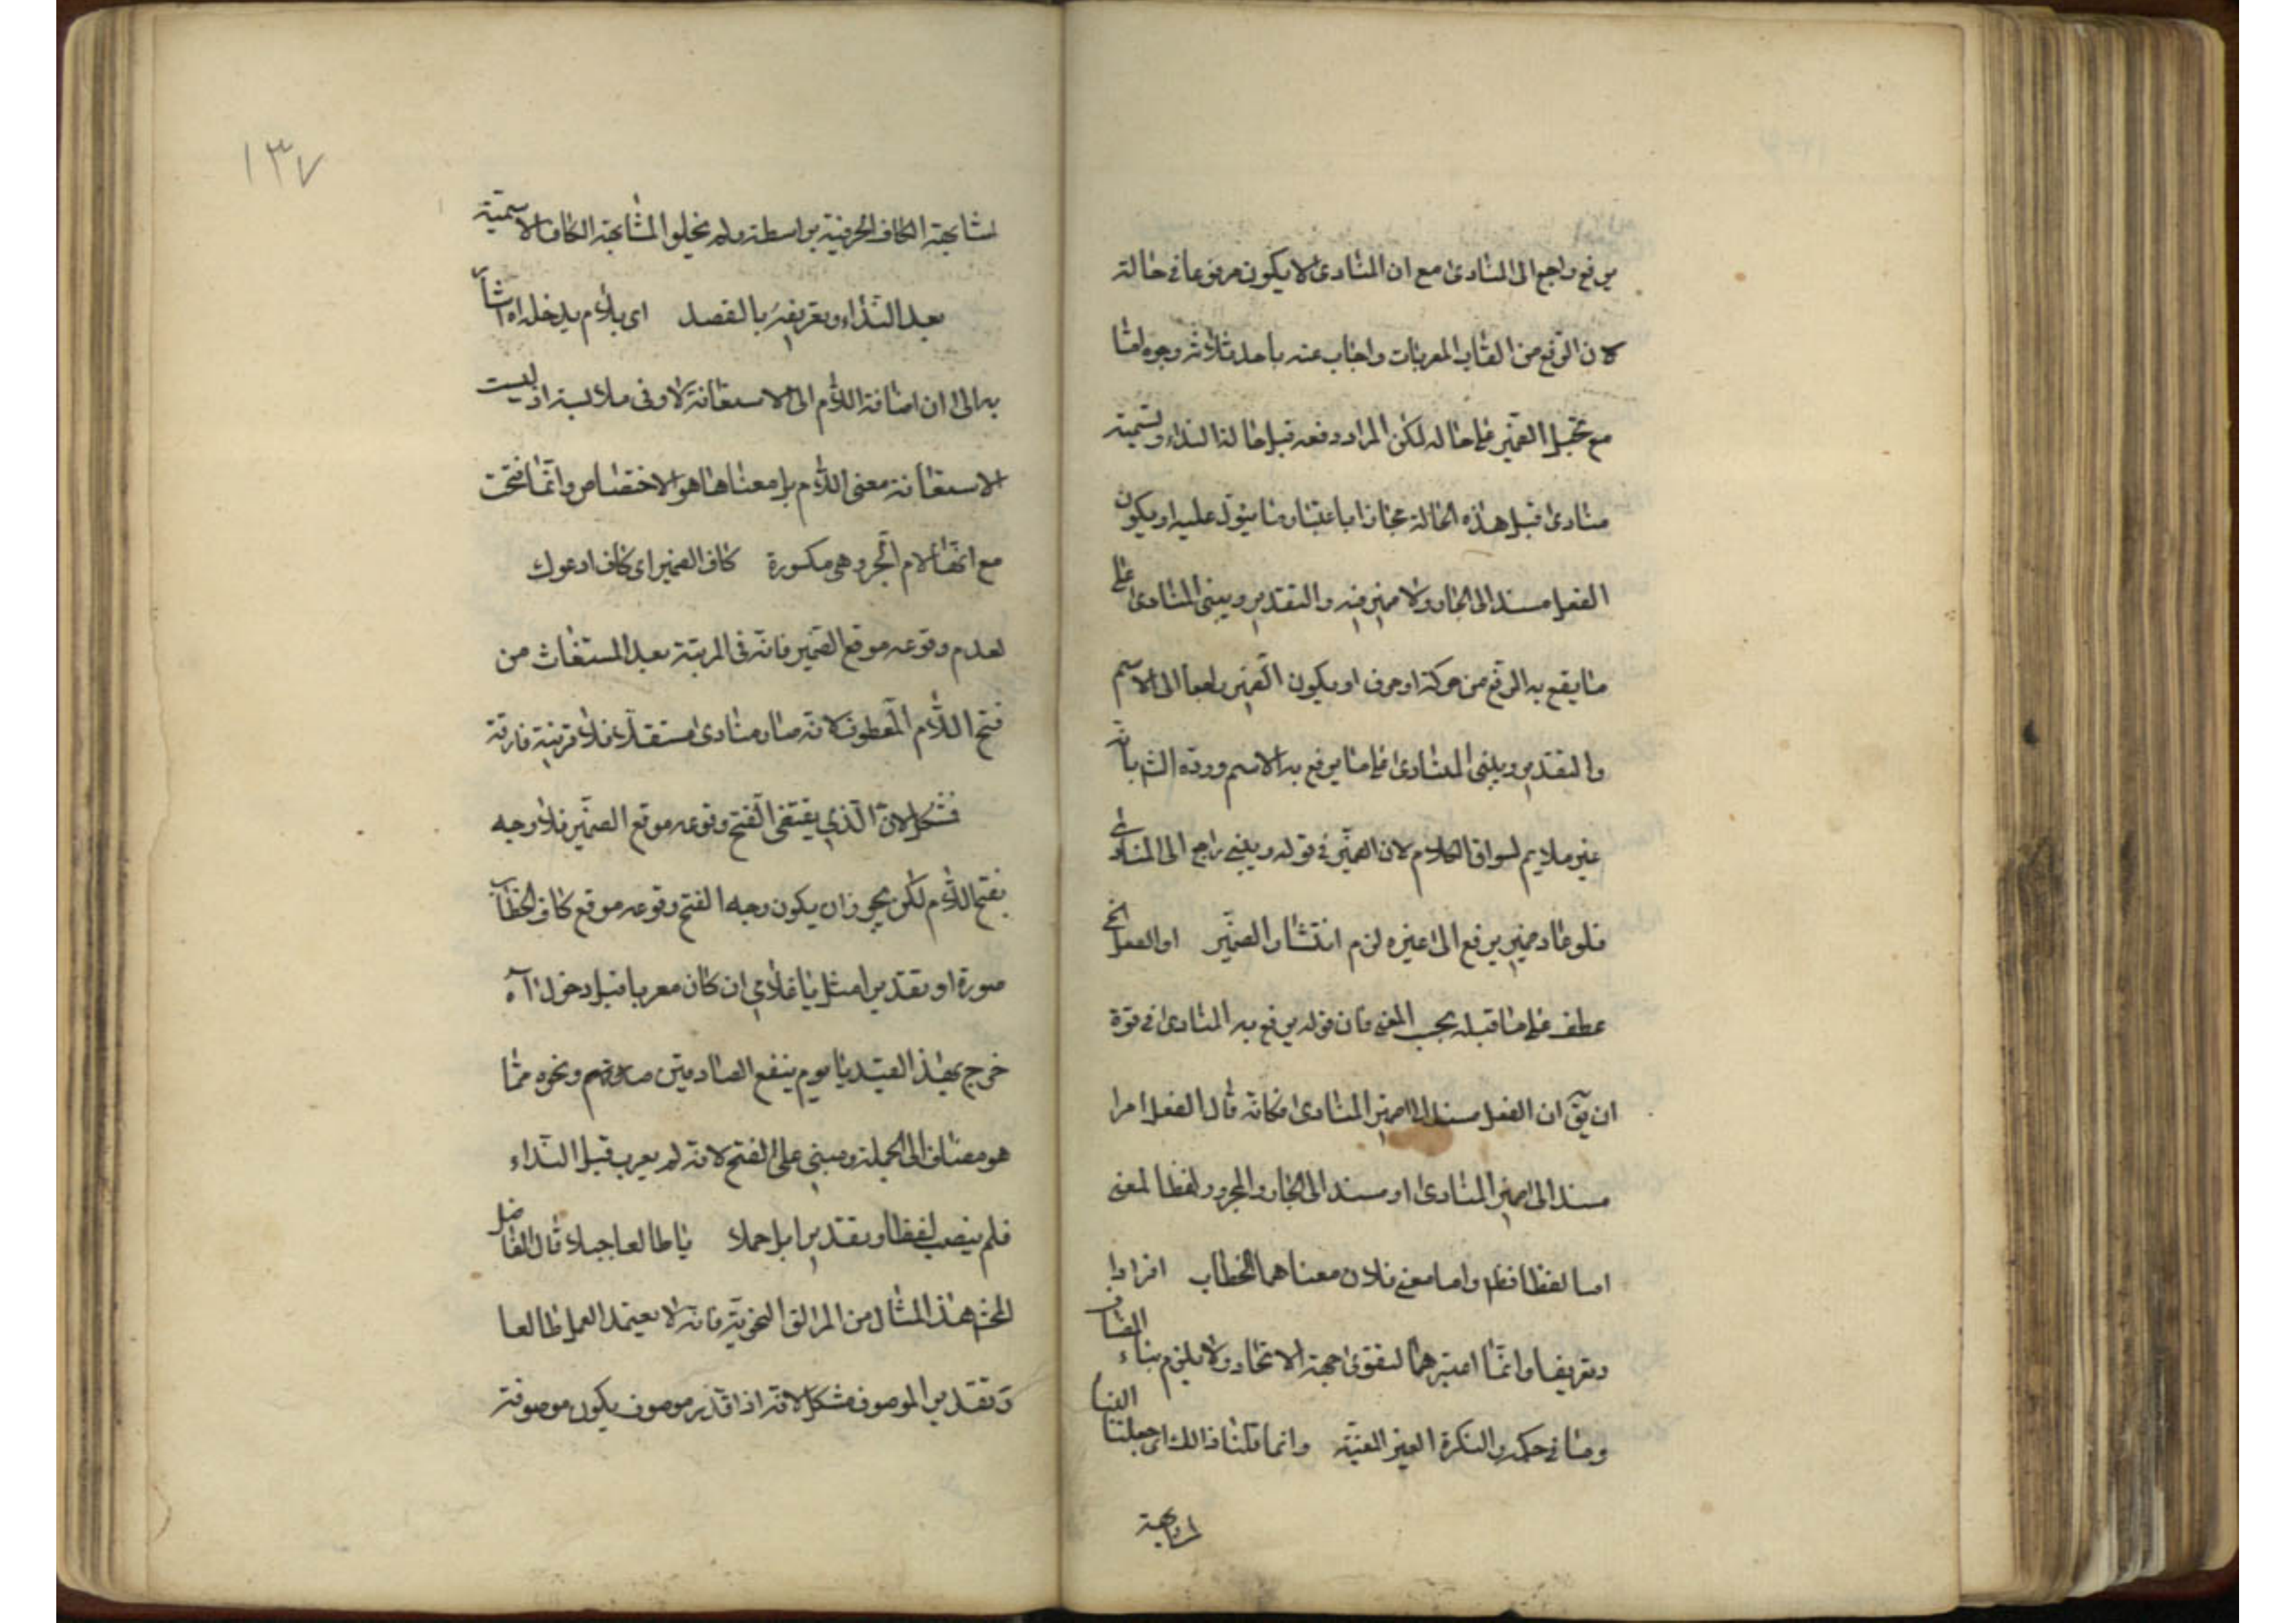 يرفع راجع الى المنادى مع ان المنادى لا يكون مرفوعا في حالة
لان الرفع من القاب المعربات واجاب عنه باحد ثلاثة وجوه امّا
مع تخيل الضمير على حاله لكن المراد رفعه قبل حالة النداء وتسميته
منادى قبل هذه الحالة مجازا باعتبار ما يئول عليه او يكون
الفعل مسندا الى الجار ولا ضمير فيه والتقدير ويبنى المنادى على
ما يقع به الرفع من حركة او حرف او يكون الضمير راجعا الى الاسم
والتقدير ويبنى المنادى على ما يرفع به الاسم وردّه الش بانه
غير ملايم لسواق الكلام لان الضمير في قوله ويبنى راجع الى المنادى
فلو عاد ضمير يرفع الى غيره لزم انتشار الضمير او الفعل الخ
عطف على ما قبله بحسب المعنى فان قوله يرفع به المنادى في قوة
ان يق ان الفعل مسند الى ضمير المنادى فكانه قال الفعل امرا
مسند الى ضمير المنادى او مسند الى الجار والمجرور لفظا لمعنى
اما لفظا فظ واما معنى فلان معناهما الخطاب افرادا
وتعريفا وانما اعتبرهما لتقوى جهة الاتحاد ولا يلزم بناء المضاف
وما في حكمه والنكرة الغير المعينة وانما قلنا ذالك اى جعلنا
لمشابهة
١٣٧
لمشابهة الكاف الحرفية بواسطة ولم يجعلوا المشابهة الكاف الاسمية
بعد النداء وتعريفه بالقصد اى بلام يدخله اه اشار
به الى ان اضافة اللام الى الاستغاثة لادنى ملابسة اذ ليست
الاستغاثة معنى اللام بل معناها هو الاختصاص وانما فتحت
مع انها لام الجر وهى مكسورة كاف الضمير اى كاف ادعوك
لعدم وقوعه موقع الضمير فانه في المرتبة بعد المستغاث من
فتح اللام المعطوف لانه صار منادى مستقلا فلا قرينة فارقة
فشكل لان الذي يقتضى الفتح وقوعه موقع الضمير فلا وجه
بفتح اللام لكن يجوز ان يكون وجه الفتح وقوعه موقع كاف الخطاب
صورة او تقديرا مثل يا غلامى ان كان معربا قبل دخول آه
خرج بهذ القيد يا يوم ينفع الصادقين صدقهم ونحوه مما
هو مضاف الى الجملة ومبني على الفتح لانه لم يعرب قبل النداء
فلم ينصب لفظا وتقديرا بل محلا يا طالعا جبلا قال الفاضل
المحشي هذ المثال من المزالق النحوية فانه لا يعتمد العمل طالعا
وتقدير الموصوف مشكل لانه اذا قدر موصوف يكون موصوفه